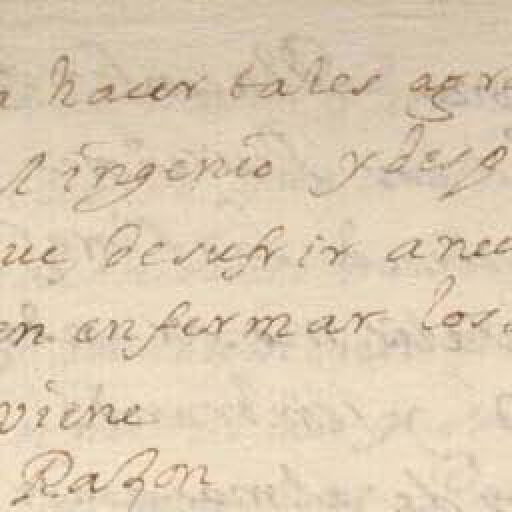 a hacer tales agra
l ingenio y desp
ue desufrir anec
en enfermar los
viene
Razon